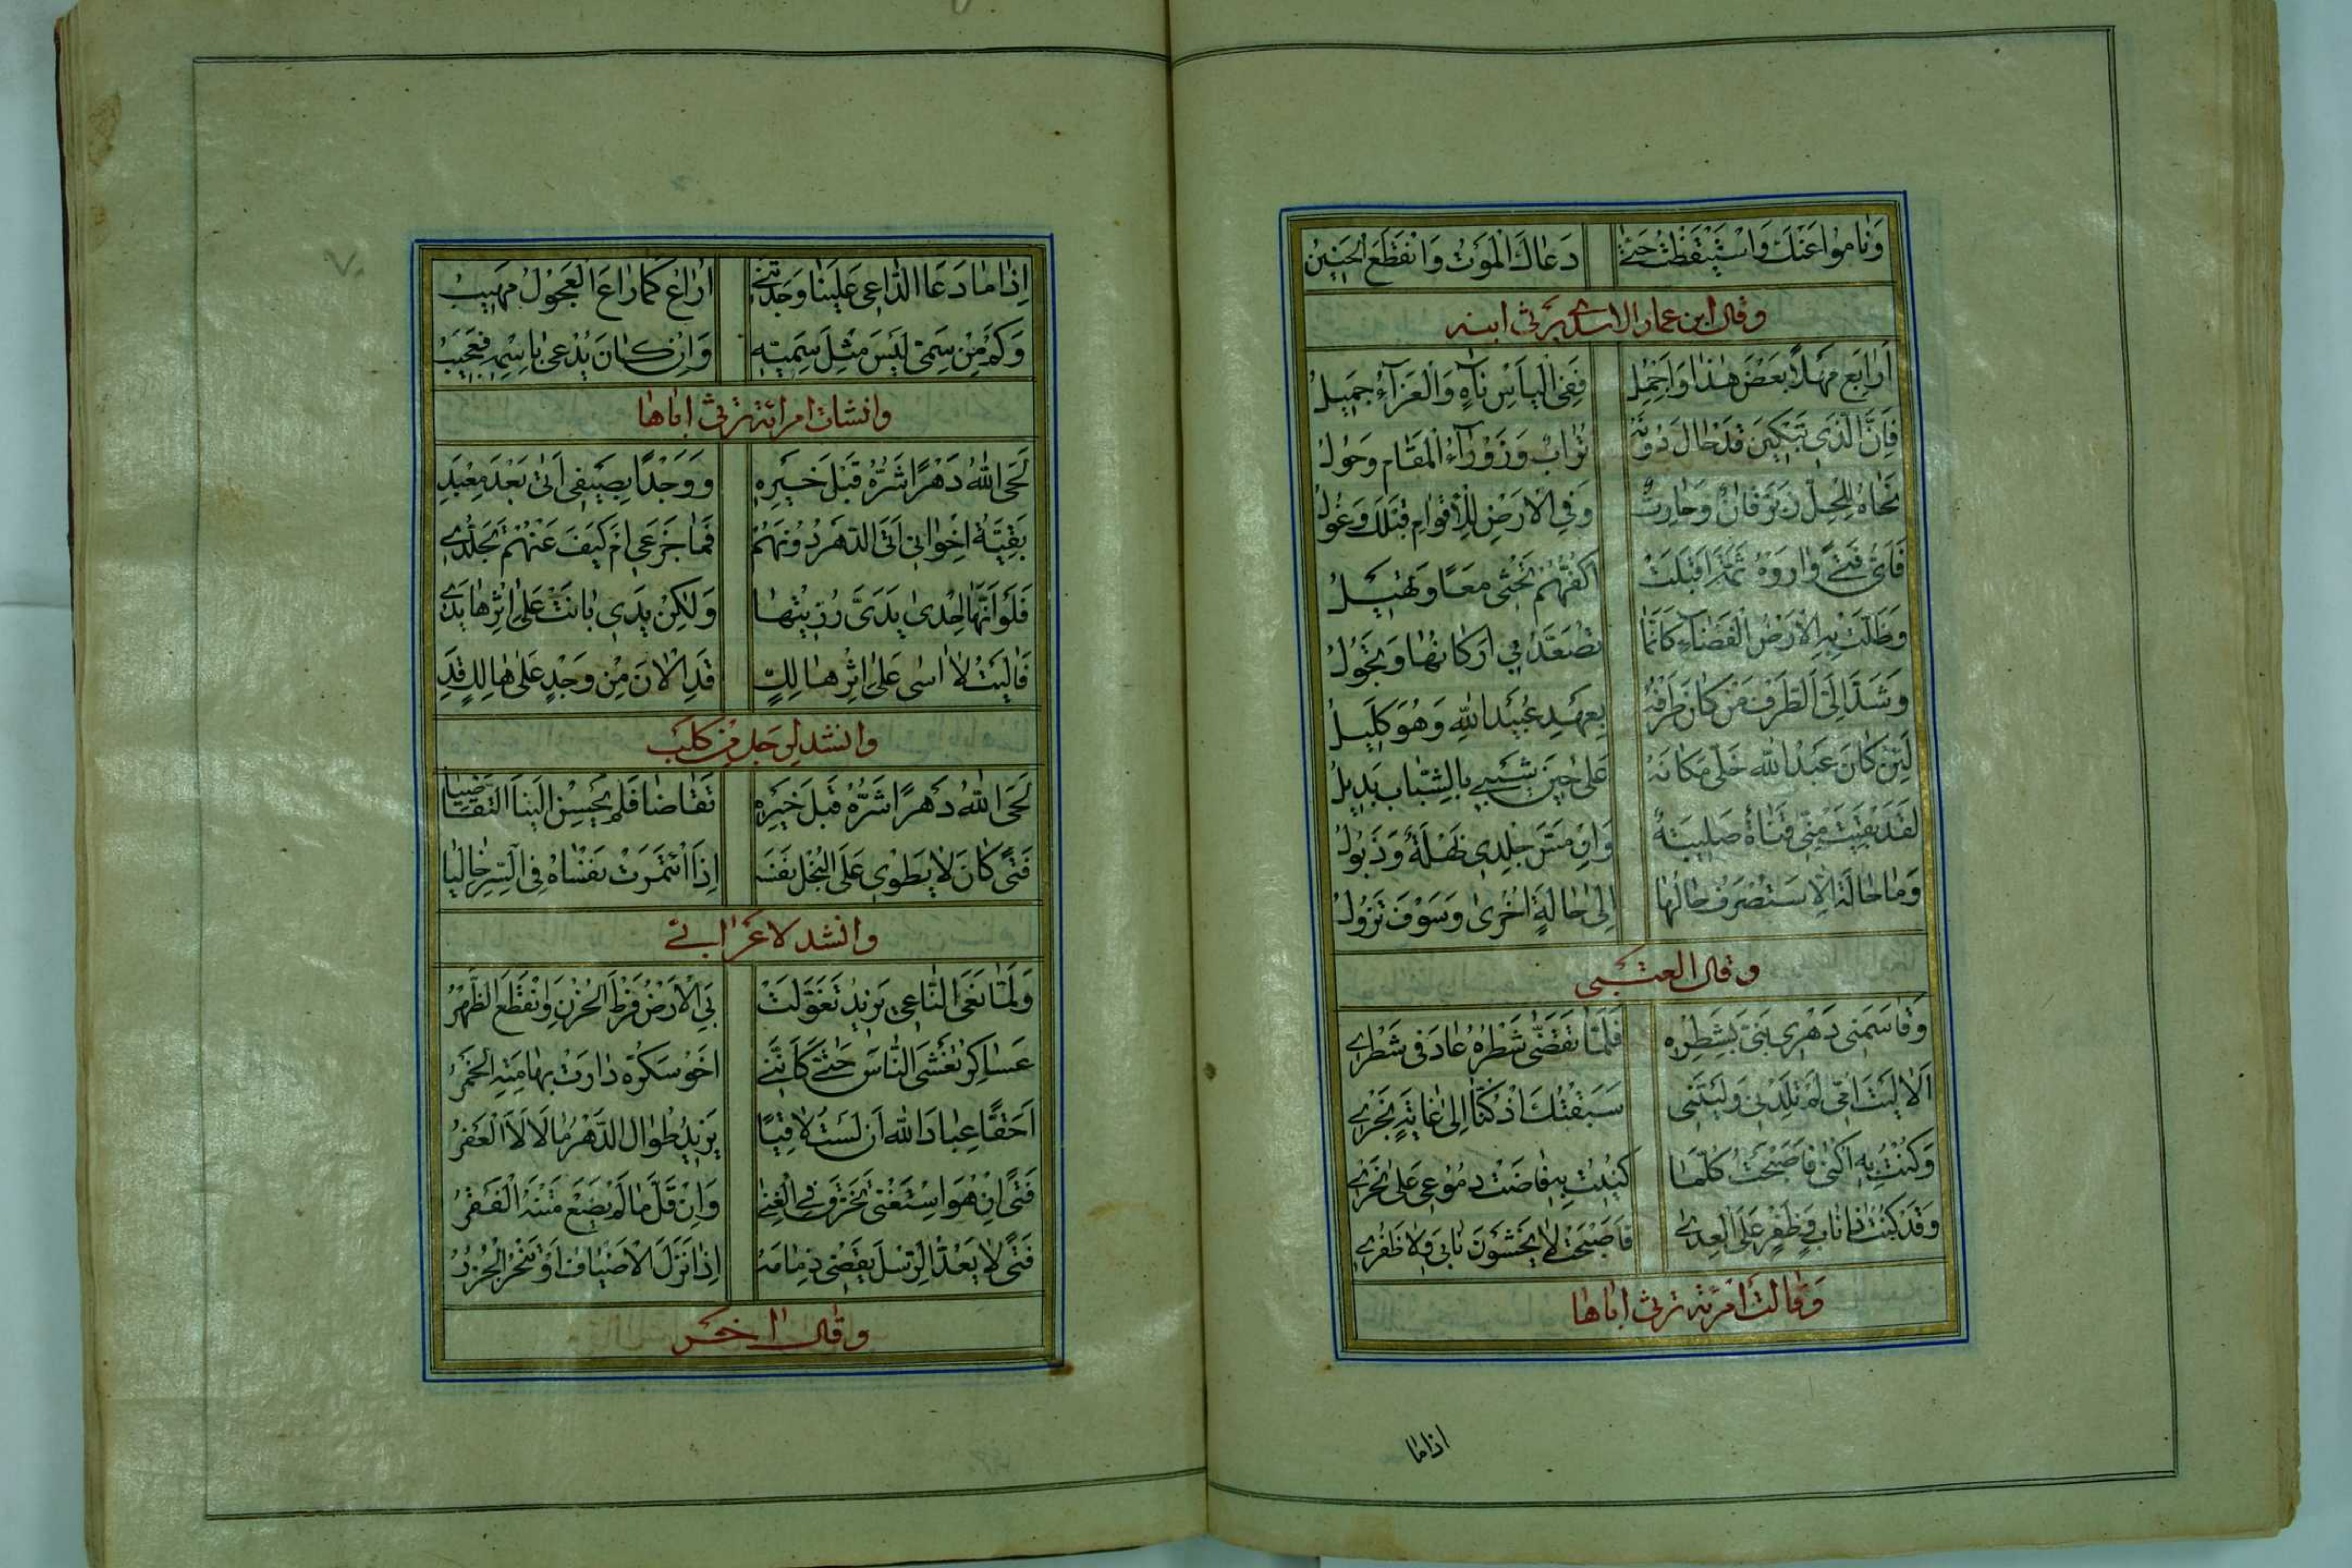 وَنٰامُواعَنْكَ وَاسْتَيْقَظْتُ حَتّٰى دَعٰاكَ الْمَوْتُ وَانْقَطَعَ الْحَنِينُ
وقال ابن عمار الاسدى يرثى ابنه
اَرٰابِعَ مَهْلًا بَعْضَ هٰذٰا وَاَجْمِلِى فَفِى الْيَاْسِ نٰاهٍ وَالْعَزٰآءُ جَمِيلُ
فَاِنَّ الَّذِى تَبْكِينَ قَدْ حٰالَ دُونَهُ تُرٰابٌ وَزَوْرٰآءُ الْمَقٰامِ دَحُولُ
نَحٰاهُ لِلَحْدٍ زِبْرِقٰانُ وَحٰارِثٌ وَفِى الْاَرْضِ لِلْاَقْوٰامِ قَبْلَكَ غُولُ
فَاَىُّ فَتًى وٰارَوْهُ ثَمَّةَ اَقْبَلَتْ اَكُفُّهُمْ تَحْثِى مَعًا وَتَهِيلُ
وَظَلَّتْ بِىَ الْاَرْضُ الْفَضٰآءُ كَاَنَّمٰا تَصَعَّدُ بِى اَرْكٰانُهٰا وَتَجُولُ
وَشَدَّ اِلَىَّ الطَّرْفَ مَنْ كٰانَ طَرْفُهُ بِعَهْدِ عُبَيْدِ اللّٰهِ وَهُوَ كَلِيلُ
لَئِنْ كٰانَ عَبْدُ اللّٰهِ خَلّٰى مَكٰانَهُ عَلٰى حِينَ شَيْبِى بِالشَّبٰابِ بَدِيلُ
لَقَدْ بَقِيَتْ مِنِّى قَنٰاةٌ صَلِيبَةٌ وَاِنْ مَسَّ جِلْدِى نَهْلَةٌ وَذُبُولُ
وَمٰا حٰالَةٌ اِلَّا سَتُصْرَفُ حٰالُهٰا اِلٰى حٰالَةٍ اُخْرٰى وَسَوْفَ تَزُولُ
وقال العتبى
وَقٰاسَمَنِى دَهْرِى بَنِىَّ بِشَطْرِهِ فَلَمّٰا تَقَضّٰى شَطْرُهُ عٰادَ فِى شَطْرِى
اَلٰا لَيْتَ اُمِّى لَمْ تَلِدْنِى وَلَيْتَنِى سَبَقْتُكَ اِذْ كُنّٰا اِلٰى غٰايَةٍ نَجْرِى
وَكُنْتُ بِهِ اُكْنٰى فَاَصْبَحْتُ كُلَّمٰا كُنِيتُ بِهِ فٰاضَتْ دُمُوعِى عَلٰى نَحْرِى
وَقَدْ كُنْتُ ذٰا نٰابٍ وَظُفْرٍ عَلَى الْعِدٰى فَاَصْبَحْتُ لٰا يَخْشَوْنَ نٰابِى وَلٰا ظُفْرِى
وَقٰالت امرئة ترثى اباها
اذاما
اِذٰا مٰا دَعَا الدّٰاعِى عَلِيًّا وَجَدْتَنِى اُرٰاعُ كَمٰا رٰاعَ الْعَجُولُ مُهِيبُ
وَكَمْ مِنْ سَمِىٍّ لَيْسَ مِثْلَ سَمِيِّهِ وَاِنْ كٰانَ يُدْعٰى بِاسْمِهِ فَيُجِيبُ
وانشدت امرائة ترثى اباها
لَحَى اللّٰهُ دَهْرًا شَرُّهُ قَبْلَ خَيْرِهِ وَوَجْدًا بِصَيْفِى اَتٰى بَعْدَ مَعْبَدِ
بَقِيَّةُ اِخْوٰانِى اَتَى الدَّهْرُ دُونَهُمْ فَمٰا جَزَعِى اَمْ كَيْفَ عَنْهُمْ تَجَلُّدِى
فَلَوْ اَنَّهٰا اِحْدٰى يَدَىَّ رُزِيتُهٰا وَلٰكِنْ يَدِى بٰانَتْ عَلٰى اِثْرِهٰا يَدِى
فَاٰلَيْتُ لٰا اٰسٰى عَلٰى اِثْرِ هٰالِكٍ قَدِ الْاٰنَ مِنْ وَجْدٍ عَلٰى هٰالِكٍ قَدِ
وانشد لرجل من كلب
لَحَى اللّٰهُ دَهْرًا شَرُّهُ قَبْلَ خَيْرِهِ تَقٰاضٰا فَلَمْ يُحْسِنْ اِلَيْنَا التَّقٰاضِيٰا
فَتًى كٰانَ لٰا يَطْوِى عَلَى الْبُخْلِ نَفْسَهُ اِذَا ائْتَمَرَتْ نَفْسٰاهُ فِى السِّرِّ خٰالِيٰا
وانشد لاعرابى
وَلَمّٰا نَعَى النّٰاعِى بَرِيدَ تَغَوَّلَتْ بِىَ الْاَرْضُ فَرْطَ الْحُزْنِ وَانْقَطَعَ الظَّهْرُ
عَسٰاكِرُ تَغْشَى النّٰاسَ حَتّٰى كَاَنَّنِى اَخُو سَكْرَةٍ دٰارَتْ بِهٰامَتِهِ الْخَمْرُ
اَحَقًّا عِبٰادَ اللّٰهِ اَنْ لَسْتُ لٰاقِيًا بَرِيدَ طُوٰالَ الدَّهْرِ مٰا لَاْلَاَ الْعُفْرُ
فَتًى اِنْ هُوَ اسْتَغْنٰى تَخَرَّقَ فِى الْغِنٰى وَاِنْ قَلَّ مٰالٌ لَمْ يَضَعْ مَتْنَهُ الْفَقْرُ
فَتًى لٰا يَعُدُّ الرِّسْلَ يَقْضِى ذِمٰامَهُ اِذٰا نَزَلَ الْاَضْيٰافُ اَوْ تُنْحَرَ الْجُزُرُ
وقال اخر